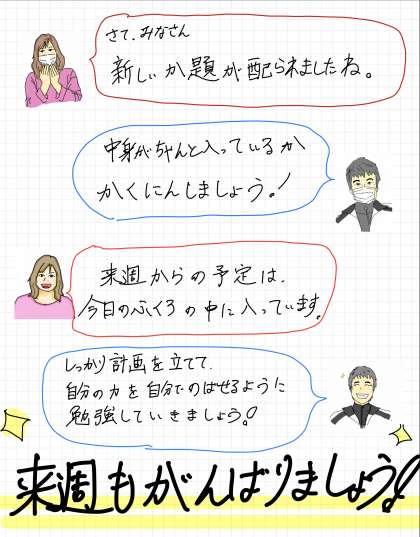 さて、みなさん
新しいか題が配られましたね。
中身がちゃんと入っているか
かくにんしましょう!
来週からの予定は、
今日のふくろの中に入っています。
しっかり計画を立てて、
自分の力を自分でのばせるように
勉強していきましょう!
来週もがんばりましょう!